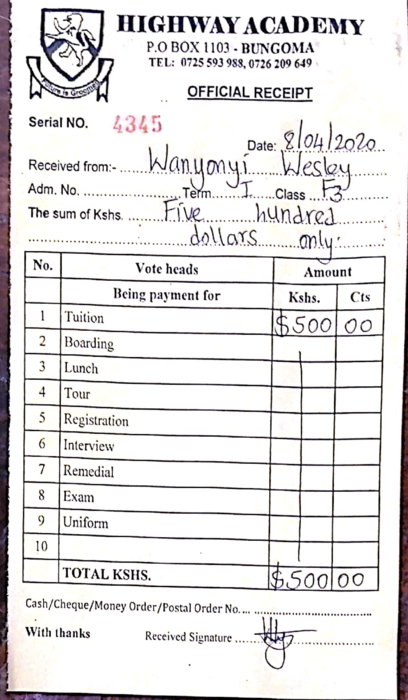 HIGHWAY ACADEMY
P.O BOX 1103 - BUNGOMA
TEL: 0725 593 988, 0726 209 649
OFFICIAL RECEIPT
Serial NO. 4345
Date: 8/04/2020
Received from:- Wanyonyi Wesley
Adm. No. ............ Term I Class F3
The sum of Kshs. Five hundred
dollars only.
No. Vote heads Amount
Being payment for Kshs. Cts
1 Tuition $500 00
2 Boarding
3 Lunch
4 Tour
5 Registration
6 Interview
7 Remedial
8 Exam
9 Uniform
10
TOTAL KSHS. $500 00
Cash/Cheque/Money Order/Postal Order No....
With thanks Received Signature